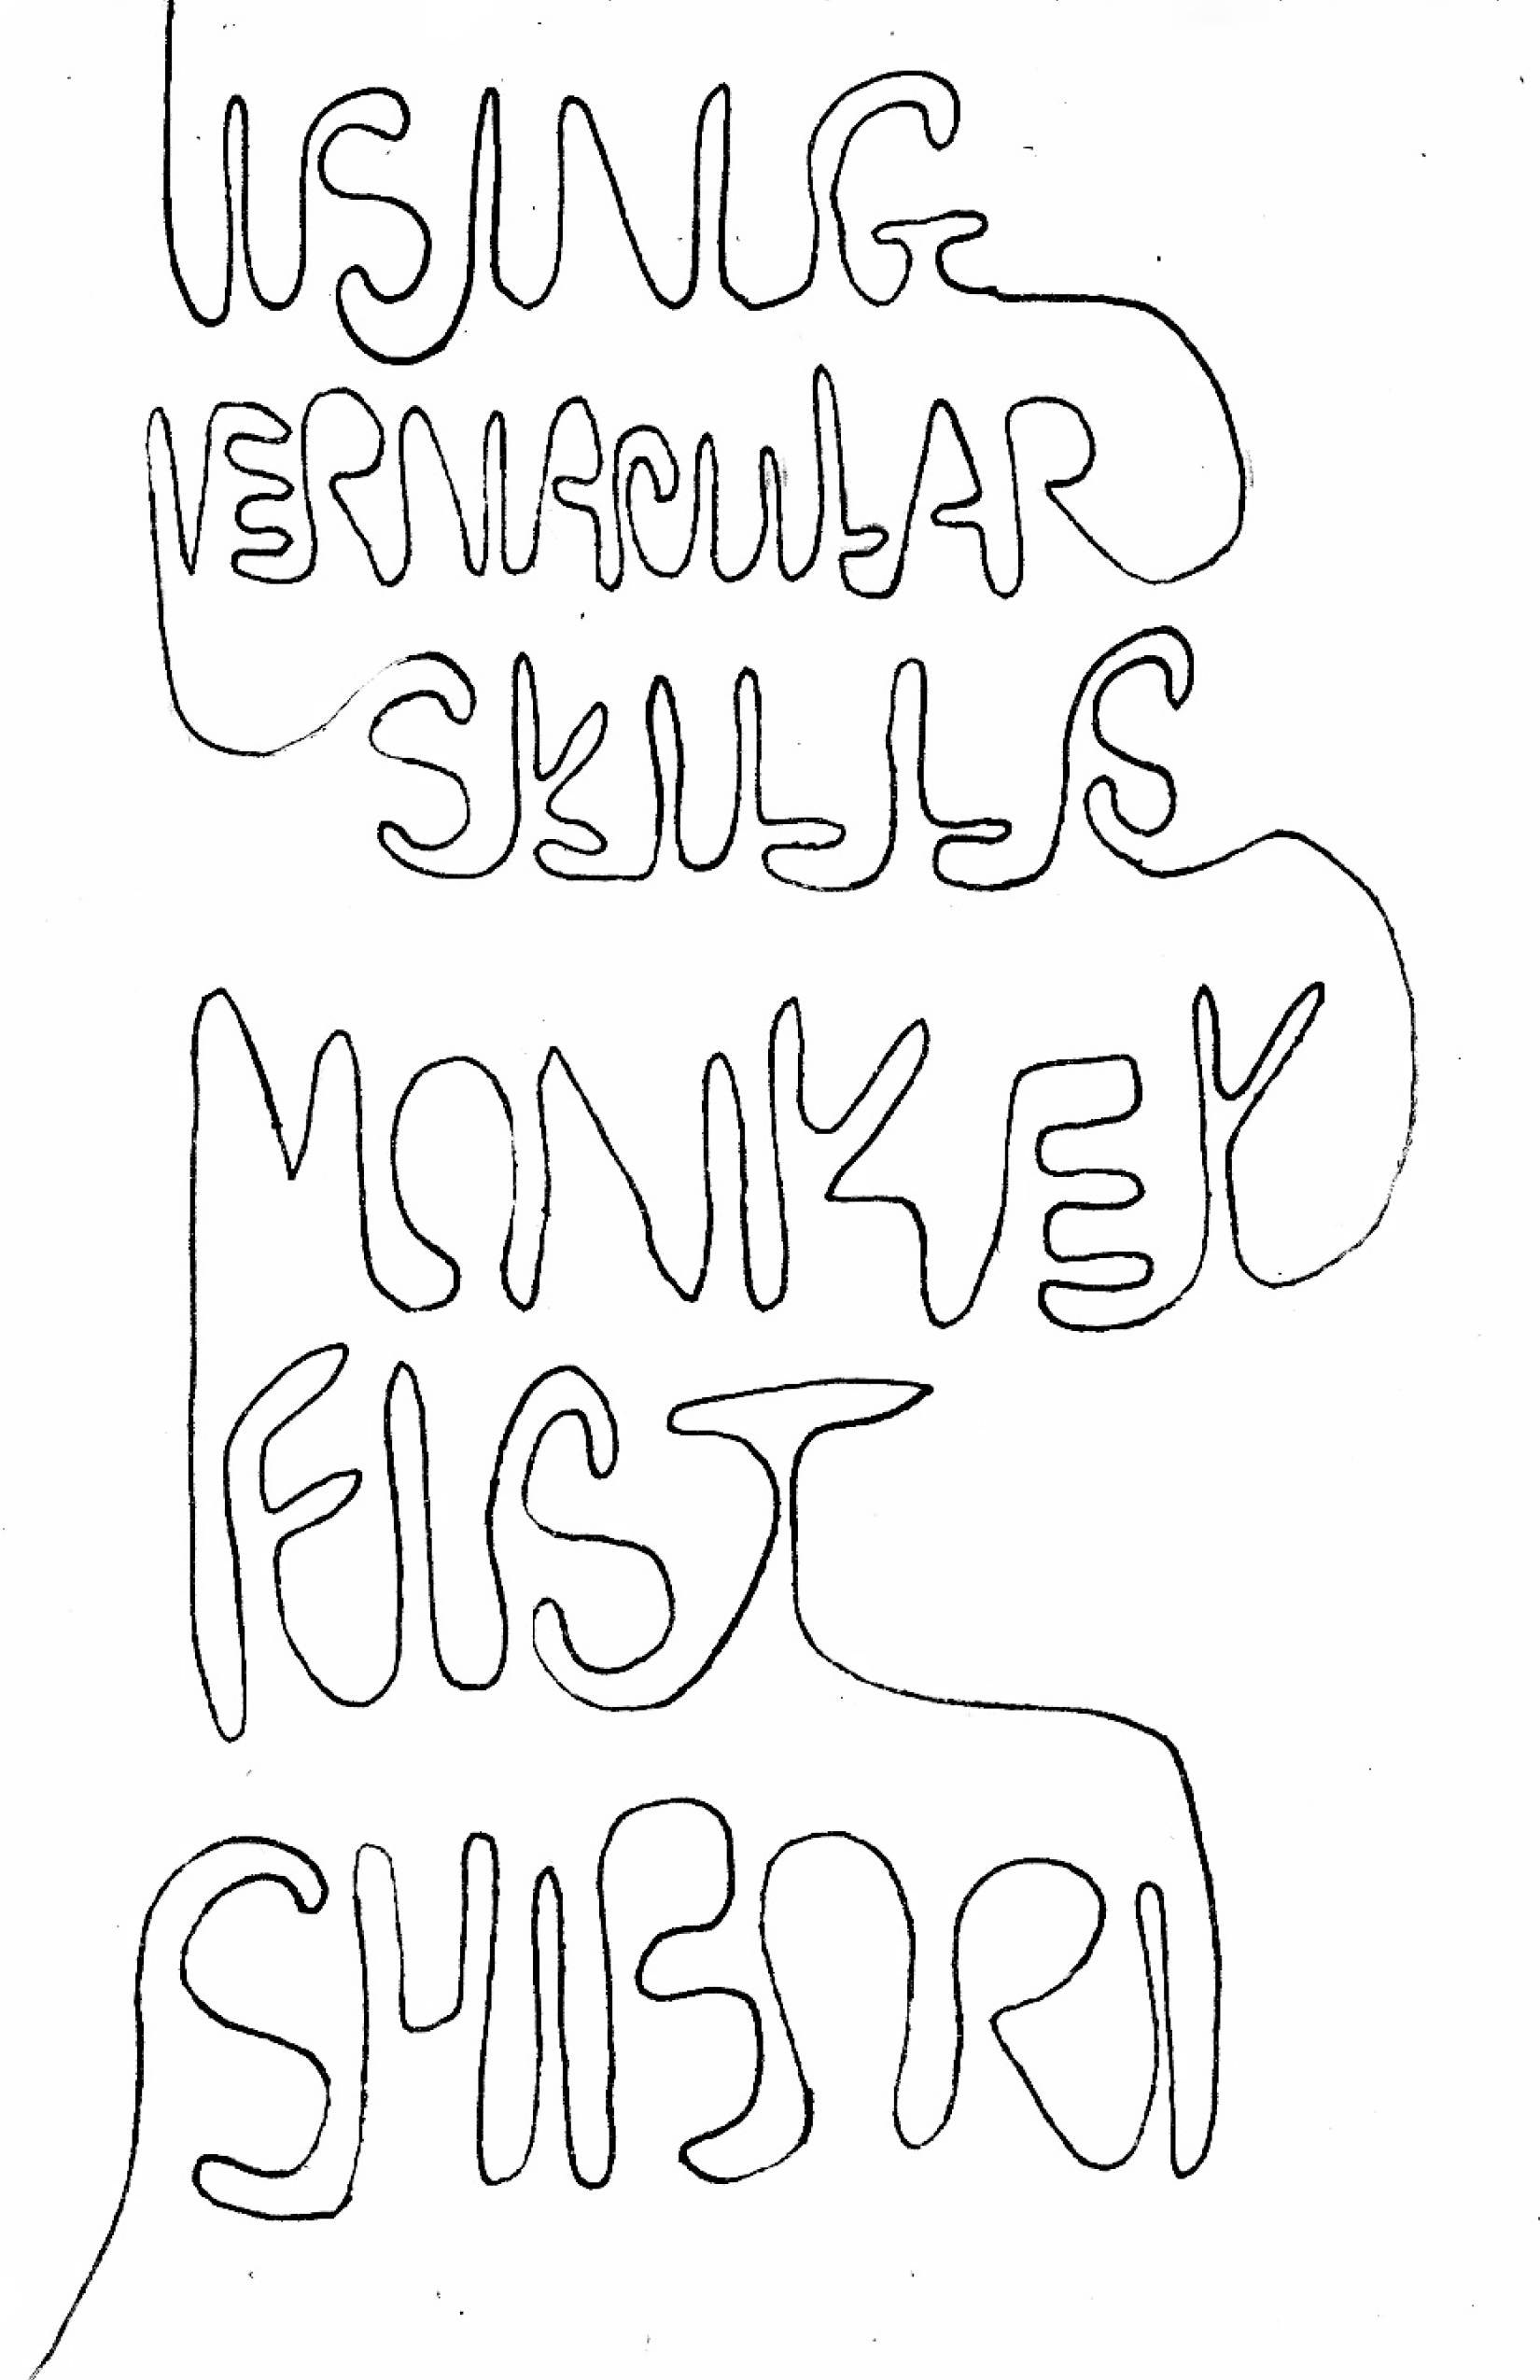 USING
VERNACULAR
SKILLS
MONKEY
FIST
SHIBORI